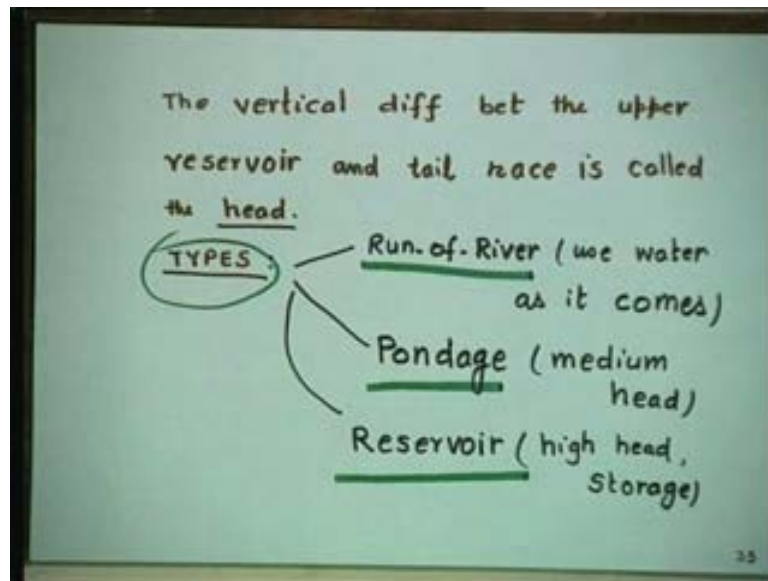 The vertical diff bet the upper
reservoir and tail race is called
the head.
TYPES : Run-of-River (use water
as it comes)
Pondage (medium
head)
Reservoir (high head,
storage)